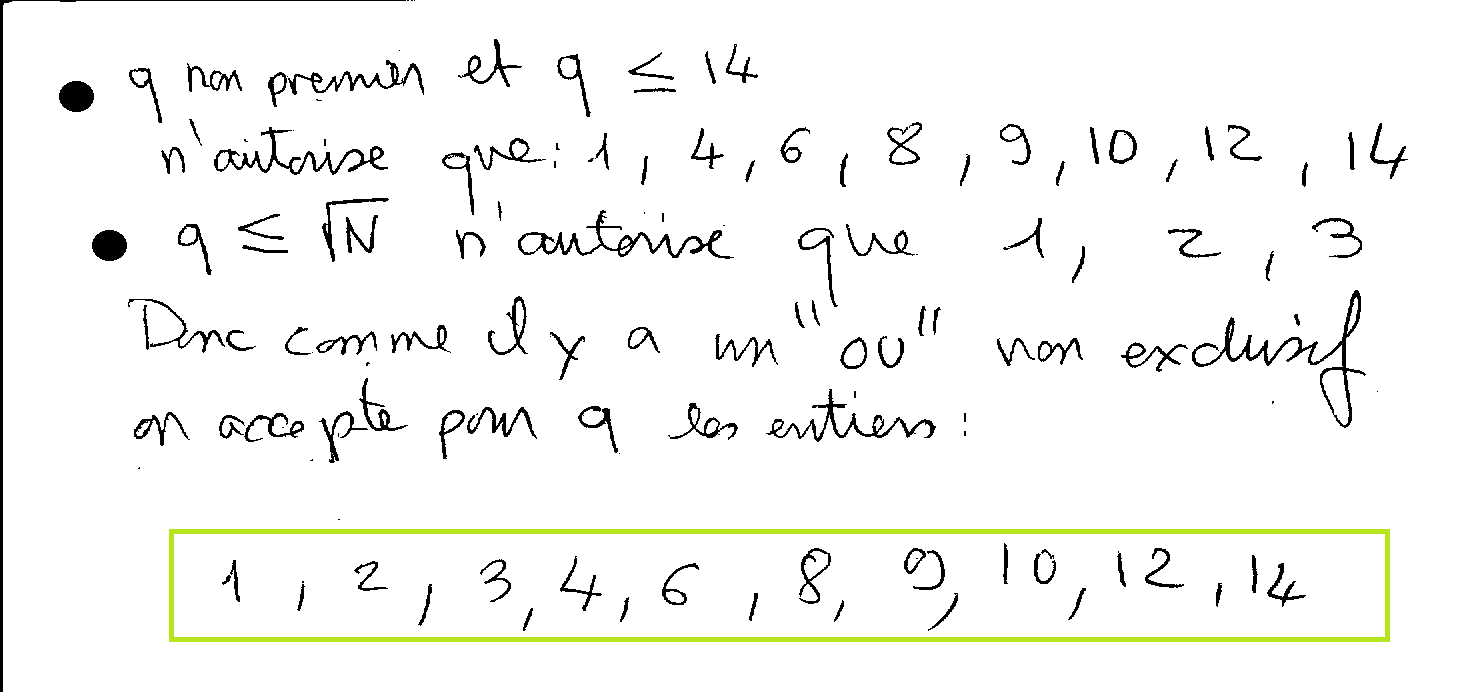 ● q non premier et q ≤ 14
n'autorise que : 1, 4, 6, 8, 9, 10, 12, 14
● q ≤ √N n'autorise que 1, 2, 3
Donc comme il y a un "ou" non exclusif
on accepte pour q les entiers :
1, 2, 3, 4, 6, 8, 9, 10, 12, 14